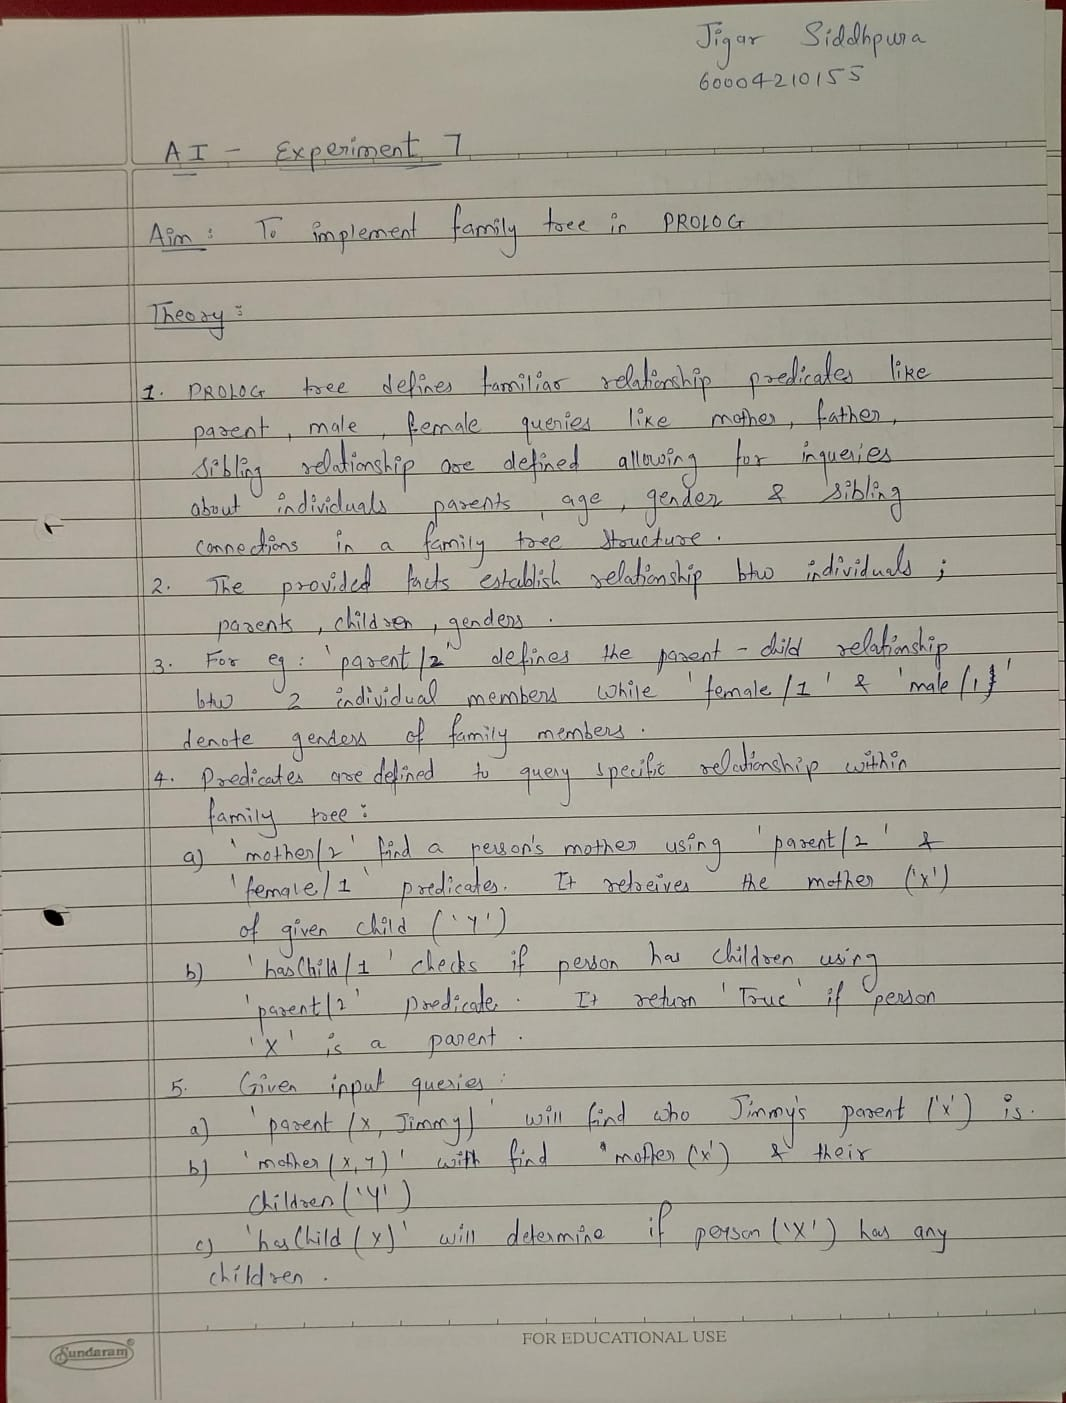 Jigar Siddhpura
60004210155
AI - Experiment 7
Aim : To implement family tree in PROLOG
Theory :
1. PROLOG tree defines familiar relationship predicates like
parent, male, female queries like mother, father,
sibling relationship are defined allowing for inqueries
about individuals parents, age, gender & sibling
connections in a family tree structure.
2. The provided facts establish relationship btw individuals ;
parents, children, genders.
3. For eg : 'parent/2' defines the parent - child relationship
btw 2 individual members while 'female/1' & 'male/1'
denote genders of family members.
4. Predicates are defined to query specific relationship within
family tree :
a) 'mother/2' find a person's mother using 'parent/2' &
'female/1' predicates. It retreives the mother ('X')
of given child ('Y')
b) 'hasChild/1' checks if person has children using
'parent/2' predicate. It return 'True' if person
'X' is a parent.
5. Given input queries :
a) 'parent (X, Jimmy)' will find who Jimmy's parent ('X') is.
b) 'mother (X, Y)' with find 'mother ('X') & their
children ('Y')
c) 'hasChild (X)' will determine if person ('X') has any
children.
Sundaram®
FOR EDUCATIONAL USE